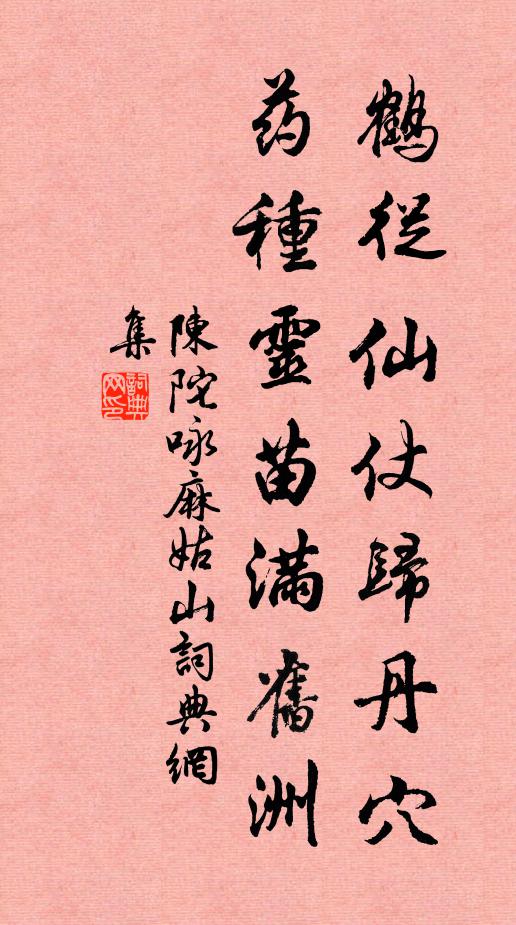 鶴從仙仗歸丹穴
药種靈苗满舊洲
陳陀咏麻姑山詞典網
集
詞典網印